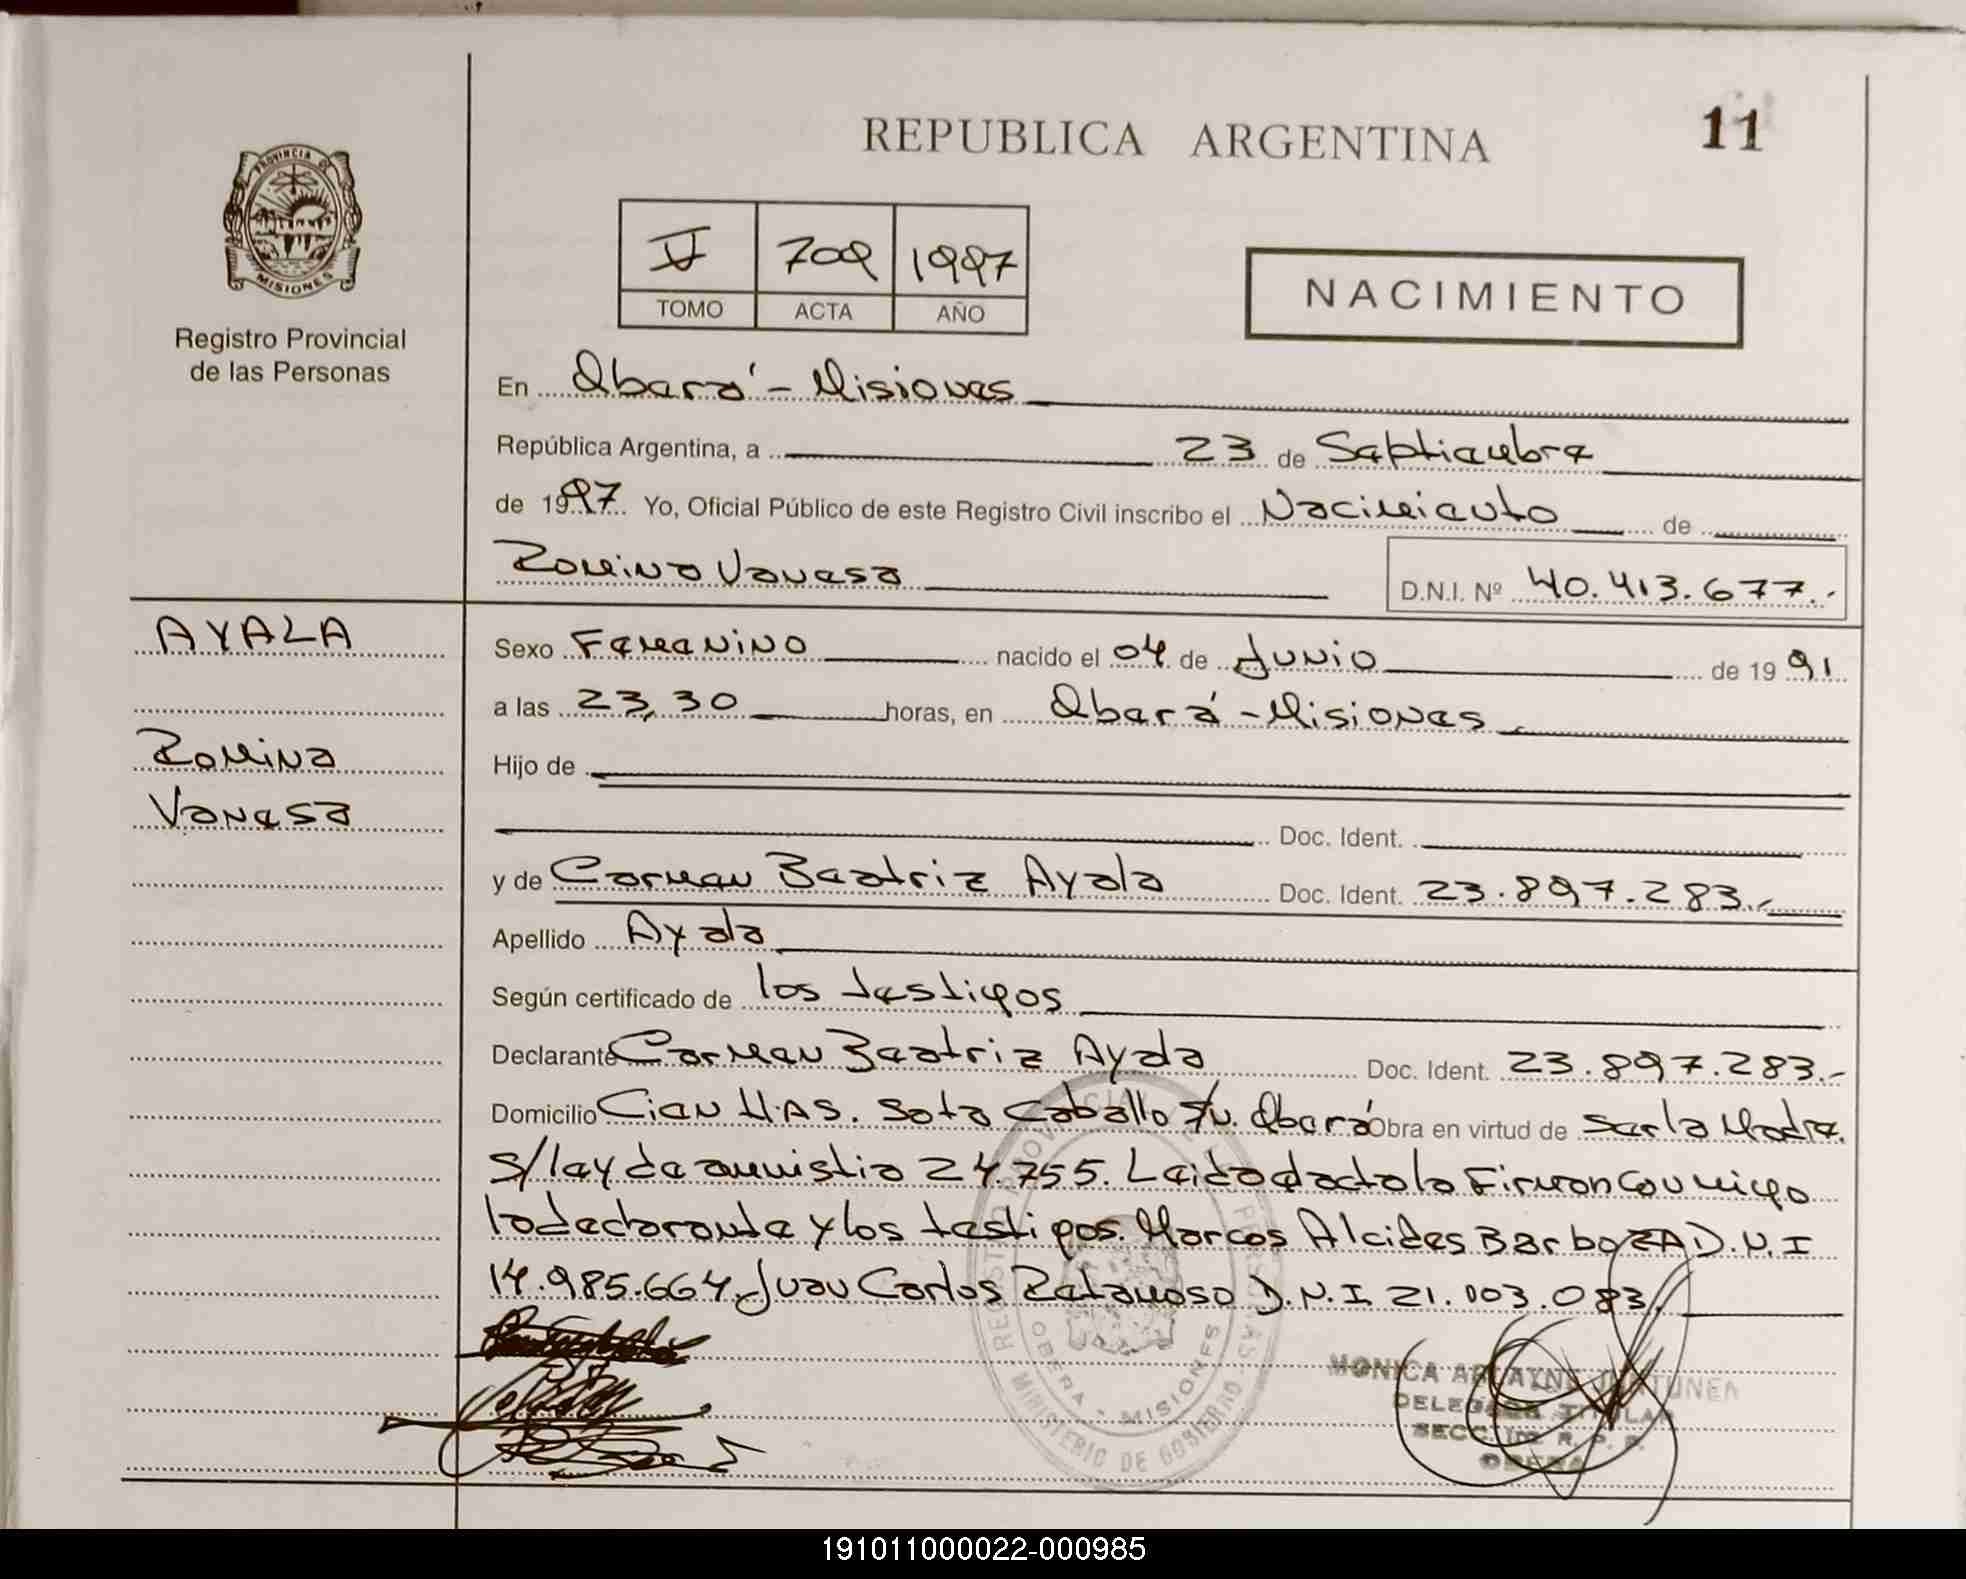 REPUBLICA ARGENTINA
11
PROVINCIA DE
MISIONES
Registro Provincial
de las Personas
V 709 1997
TOMO ACTA AÑO
NACIMIENTO
En Oberá - Misiones
República Argentina, a 23 de Septiembre
de 1997 Yo, Oficial Público de este Registro Civil inscribo el Nacimiento de
Romina Vanesa
D.N.I. Nº 40.413.677.-
AYALA
Romina
Vanesa
Sexo Femenino nacido el 04 de Junio de 19 91
a las 23,30 horas, en Oberá - Misiones
Hijo de
Doc. Ident.
y de Carmen Beatriz Ayala Doc. Ident. 23.897.283.-
Apellido Ayala
Según certificado de los testigos
Declarante Carmen Beatriz Ayala Doc. Ident. 23.897.283.-
Domicilio Cien Has. Soto Caballo S/n. Oberá Obra en virtud de ser la Madre.
s/ley de amnistia 24.755. Leida el acta la Firman conmigo
la declarante y los testigos. Marcos Alcides BarbozA D.N.I
14.985.664. Juan Carlos Retamoso D.N.I 21.003.083.
REGISTRO PROVINCIAL DE LAS PERSONAS
OBERA - MISIONES
MINISTERIO DE GOBIERNO
MONICA
DELEGADA TITULAR
SECC. R. P. P.
OBERA
191011000022-000985